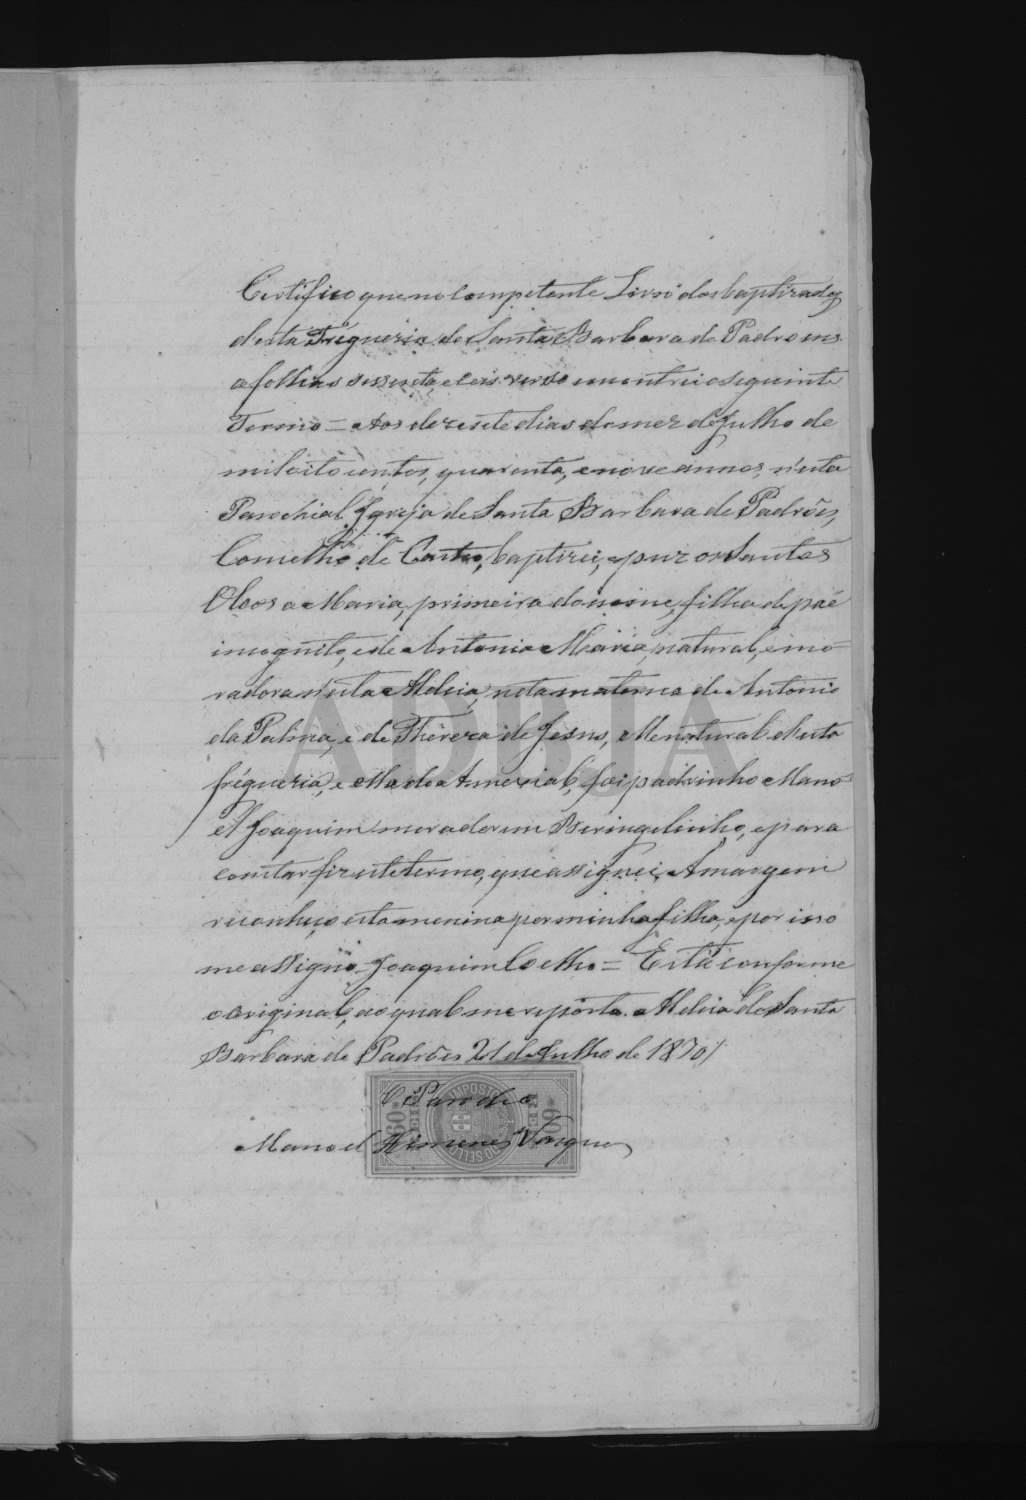 Certifico que no competente Livro dos baptizados
desta Fregueria de Santa Barbara de Padroens
a folhas sessenta, e seis verso encontrei o seguinte
Termo = Aos dezesete dias do mez de Julho de
mil oito centos, quarenta, e nove annos, n'esta
Parochial Igreja de Santa Barbara de Padrões,
Concelho de Castro, baptizei, e puz os Santos
Oleos a Maria, primeira do nome, filha de pae
incognito, e de Antonia Maria, natural, e mo-
radora n'esta Aldeia, neta materna de Antonio
da Palma, e de Thereza de Jesus, elle natural desta
fregueria, e ella do Ameixial, foi padrinho Mano-
el Joaquim morador em Beringelinho, e para
constar fiz este termo, que assignei. Á margem
reconheço esta menina por minha filha, e por isso
me assigno Joaquim Coelho = Está conforme
o original, ao qual me reporto. Aldeia de Santa
Barbara de Padrões 21 de Julho de 1870/
O Parocho
Manoel Ximenes Vasques
IMPOSTO DO SELLO
60 REIS
REIS 60
ADBJA